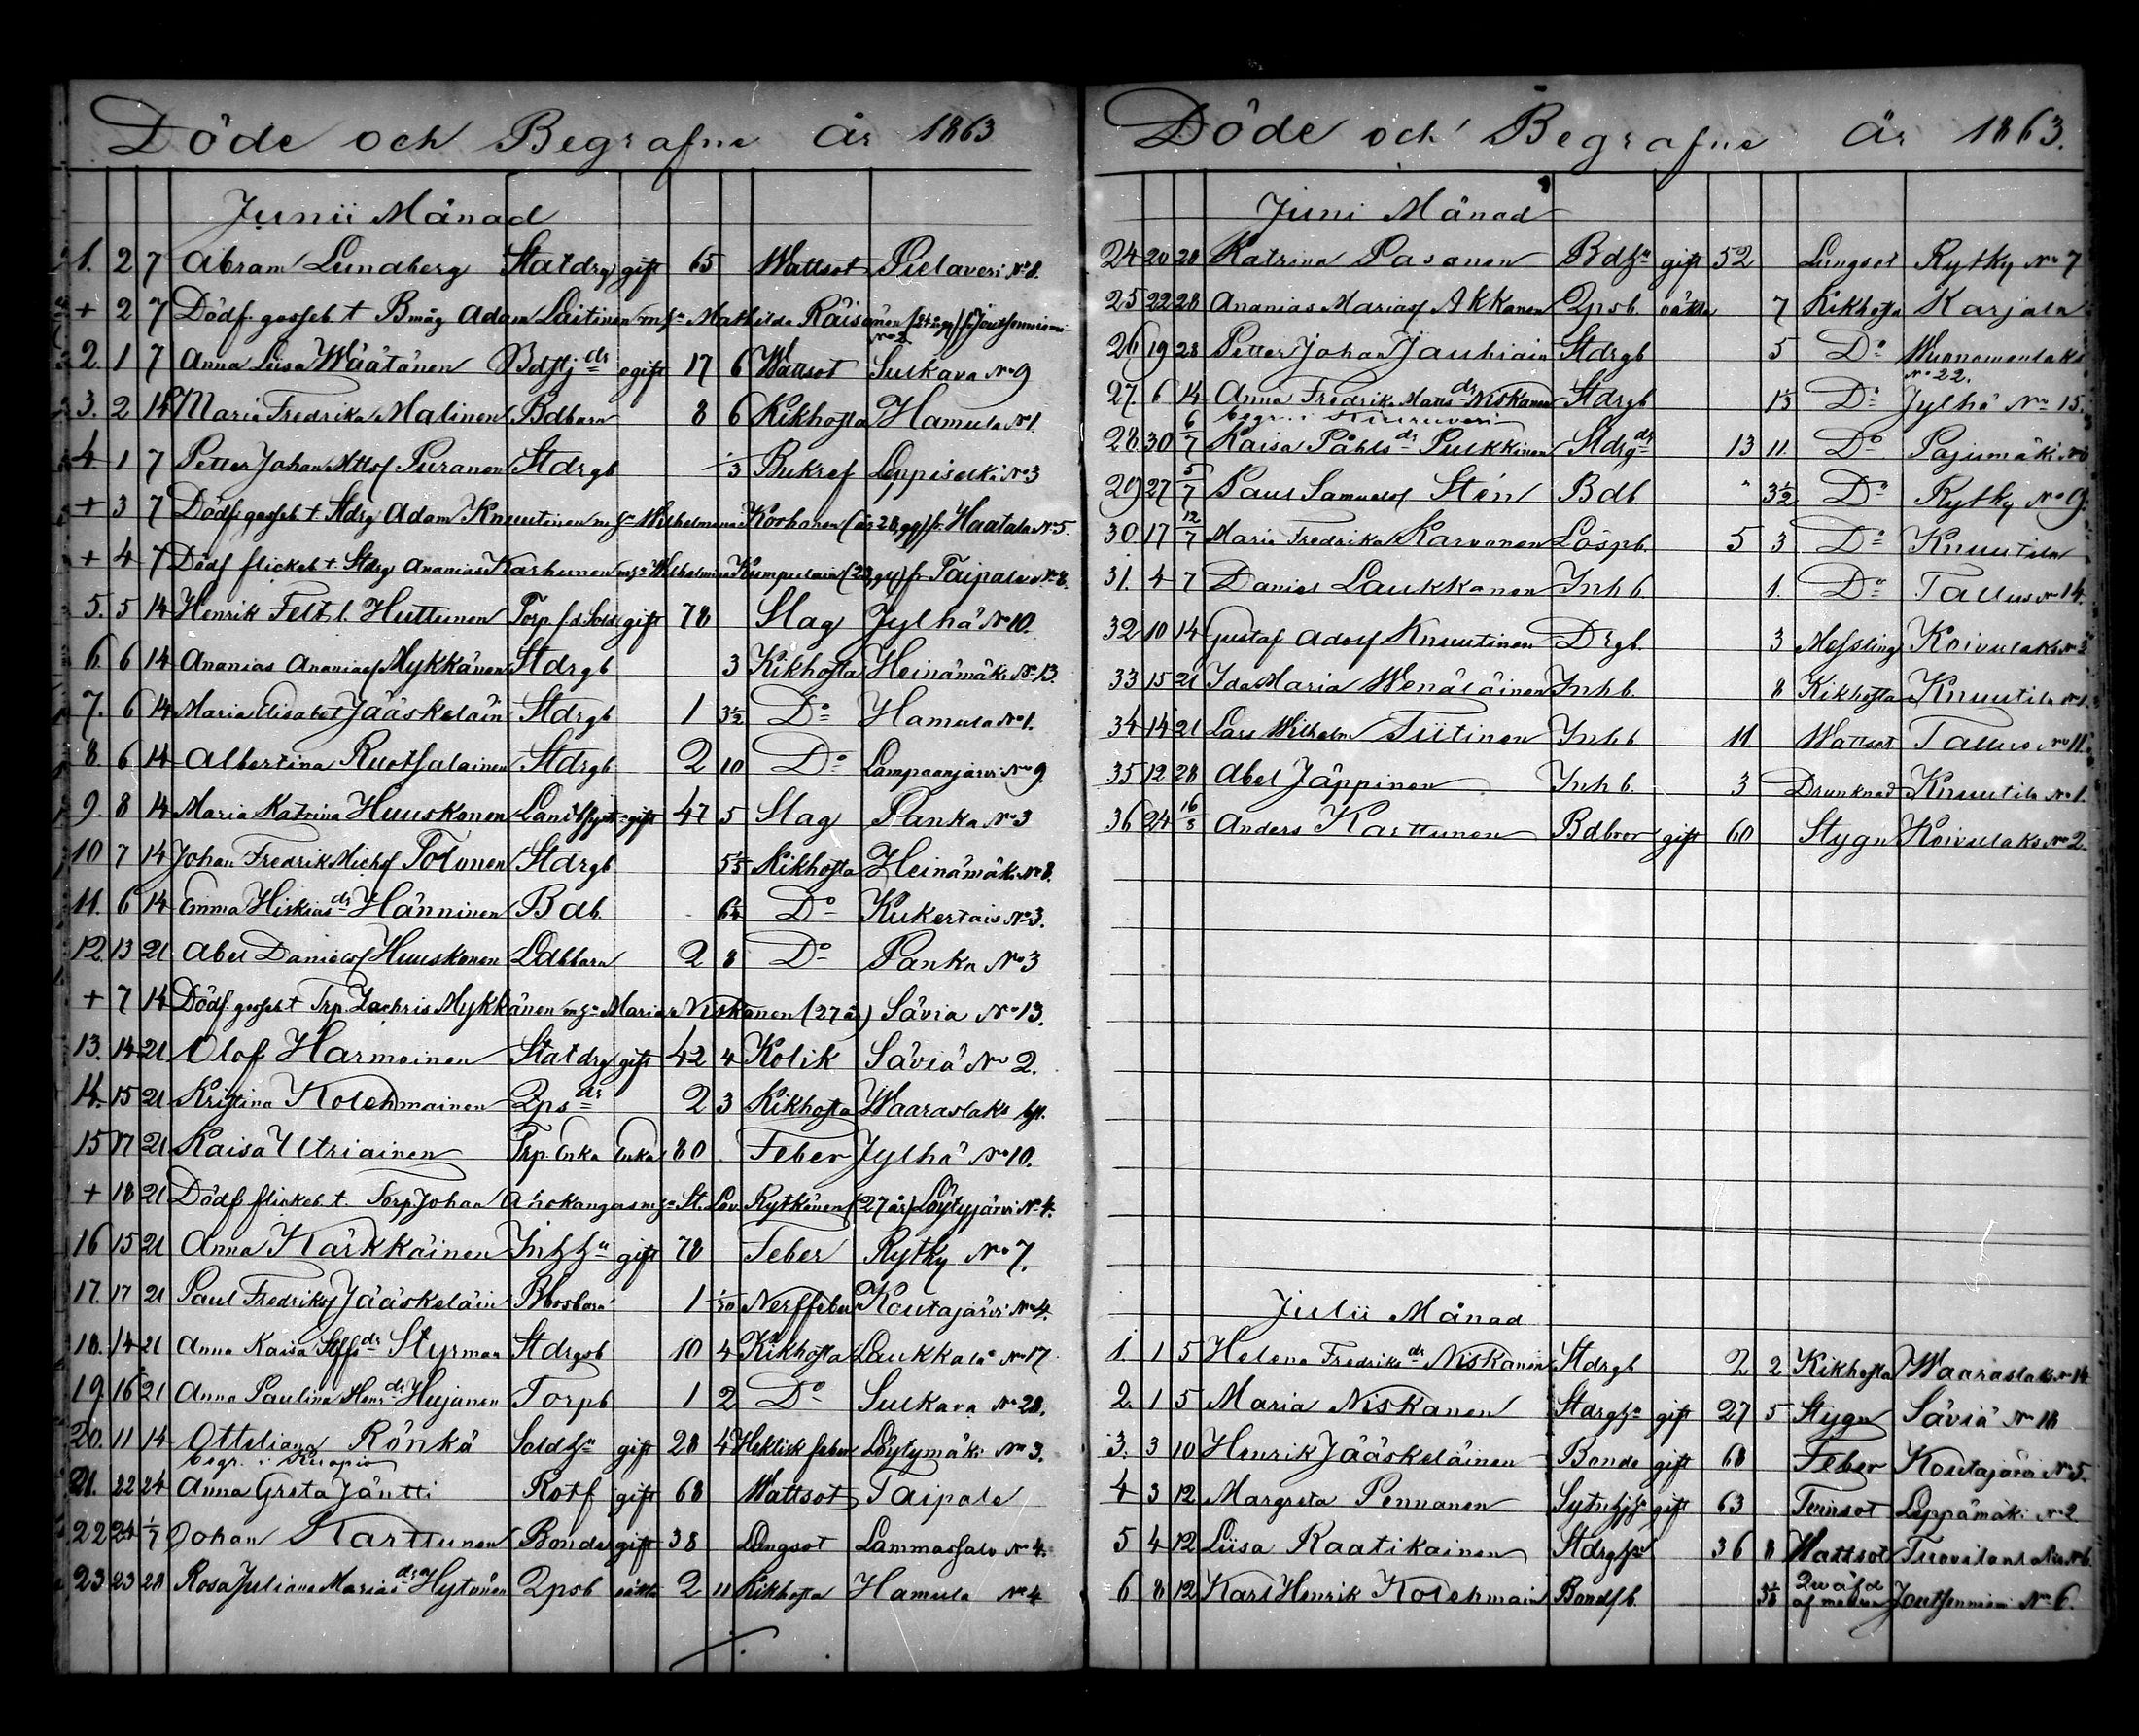 Döde och Begrafne år 1863
Junii Månad
1. 2 7 Abram Lundberg Statdrg gift 65 Wattsot Pielaveri No 8.
+ 2 7 Dödf. gosseb t Bmåg Adam Laitinen m hu Mathilda Räisänen (24 år gl) fr Joutsenniemi No 2
2. 1 7 Anna Liisa Wäätänen Bdstjdr ogift 17 6 Wattsot Sulkava No 9
3. 2 14 Maria Fredrika Malinen Bdbarn 8 6 Kikhosta Hamula No 1.
4. 1 7 Petter Johan Mttss Puranen Stdrgb 1/3 Bukref Leppiselkä No 3
+ 3 7 Dödf. gosseb t. Stdrg Adam Knuutinen m hu Wilhelmina Korhonen (år 28, gl) fr. Haatala No 5.
+ 4 7 Dödf flickeb t. Stdrg Ananias Karhunen m hu Wilhelmina Kumpulain (23 gl) fr Taipale No 8.
5. 5 14 Henrik Felt f. Huttunen Torp fd Sold gift 78 Slag Jylhä No 10.
6. 6 14 Ananias Ananiass Mykkänen Stdrgb 3 Kikhosta Heinämäki No 13.
7. 6 14 Maria Elisabet Jääskeläin Stdrgb 1 3 1/2 Do Hamula No 1.
8. 6 14 Albertina Ruotsalainen Stdrgb 2 10 Do Lampaanjärvi No 9.
9. 8 14 Maria Katrina Huuskonen gift 47 5 Slag Panka No 3
10 7 14 Johan Fredrik Michss Tolonen Stdrgb Kikhosta Heinämäki No 8.
11. 6 14 Emma Hiskiasdr Hänninen Bdb. Do Kukertais No 3.
12. 13 21 Abel Danielss Huuskonen Ldbbarn 2 8 Do Panka No 3
+ 7 14 Dödf. gosseb t Trp. Zachris Mykkänen m hu Maria Niskanen (27 år) Säviä No 13.
13. 14 21 Olof Harmoinen Statdrg gift 42 4 Kolik Säviä No 2.
14. 15 21 Kristina Kolehmainen Qpsdr 2 3 Kikhosta Waaraslaks
15 17 21 Kaisa Utriainen Trp. Enka Enka 80 Feber Jylhä No 10.
+ 18 21 Dödf flickeb t. Torp Johan Ahokangas m hu St. Lov. Rytkönen (27 år) Löytyjärvi No 4.
16 15 21 Anna Kärkkäinen Inh hu gift 78 Feber Rytky No 7.
17. 17 21 Paul Fredrikss Jääskeläin 1 1/30 Nerffeber Koutajärvi No 4.
18. 14 21 Anna Kaisa Stfsdr Styrman Stdrgsb 10 4 Kikhosta Laukkala No 17
19 16 21 Anna Paulina Henrdr Hujanen Torpb 1 2 Do Sulkava No 28.
20. 11 14 Otteliana Rönkä Sold hu gift 28 4 Hektisk feber Löytymäki No 3.
begr. i Kuopio
21. 22 24 Anna Greta Jäntti Rotf gift 68 Wattsot Taipale
22 24 1/7 Johan Karttunen Bonde gift 38 Lungsot Lammassalo No 4.
23 23 28 Rosa Juliana Mariasdr Hytönen Qpsb oäkta 2 11 Kikhosta Hamula No 4
Döde och Begrafne år 1863.
Juni Månad
24 20 28 Katrina Pasanen Bdhu gift 52 Lungsot Rytky No 7
25 22 28 Ananias Mariass Akkanen Qpsb. oäkta 7 Kikhosta Karjala
26 19 28 Petter Johan Jauhiain Stdrgb 5 Do Wuonamonlaks No 22.
27. 6 14 Anna Fredrika Mattsdr Niskanen Stdrgb 1/3 Do Jylhä No 15.
begr. i Kiuruvesi
28. 30 6/7 Kaisa Påhlsdr Pulkkinen Stdrgdr 13 11. Do Pajumäki No 6
29 27 5/7 Paul Samuelss Sten Bdb " 3 1/2 Do Rytky No 9.
30. 17 12/7 Maria Fredrika Karvonen Löspb. 5 3 Do Knuutila
31. 4 7 Daniel Laukkanen Inhb. 1. Do Tallus No 14.
32 10 14 Gustaf Adolf Knuutinen Drgb. 3 Messling Koivulaks No 2
33 15 21 Ida Maria Wenäläinen Inhb. 8 Kikhosta Knuutila No 1.
34 14 21 Lars Wilhelm Tiitinen Inhb 11 Wattsot Tallus No 11.
35 12 28 Abel Jäppinen Inhb. 3 Drunknad Knuutila No 1.
36 24 16/8 Anders Karttunen Bdbror gift 60 Stygn Koivulaks No 2.
Julii Månad
1. 1 5 Helena Fredriksdr Niskanen Stdrgb 2 2 Kikhosta Waaraslaks No 14
2. 1 5 Maria Niskanen Stdrghu gift 27 5 Stygn Säviä No 18
3. 3 10 Henrik Jääskeläinen Bonde gift 68 Feber Koutajärvi No 5.
4 3 12 Margreta Pennanen Sytnhjhu gift 63 Leppämäki No 2
5 4 12 Liisa Raatikainen Stdrghu 36 8 Wattsot Tuovilanlaks No 6.
6 8 12 Karl Henrik Kolehmain Bondsb. Qwäfd af modren Joutsenniemi No 6.